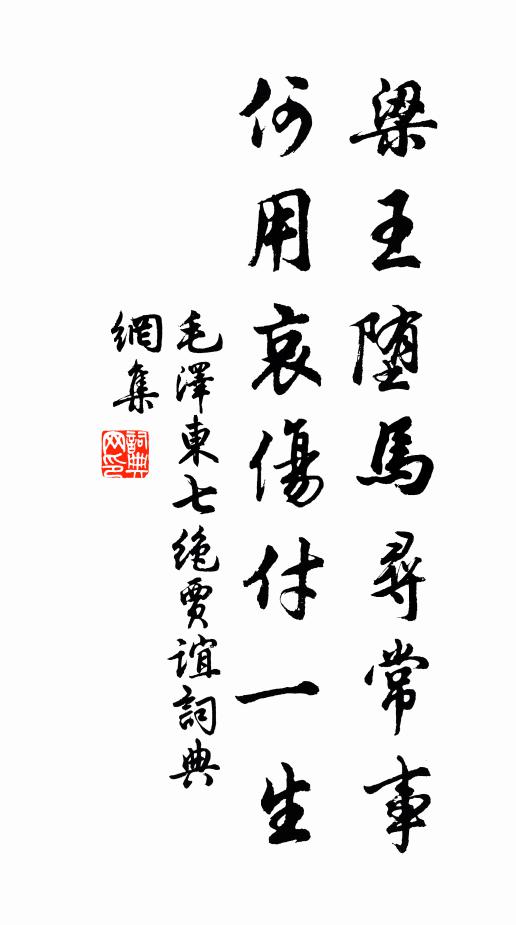 梁王堕馬尋常事
何用哀傷付一生
毛澤東七絶賈誼詞典
網集
詞典
网印